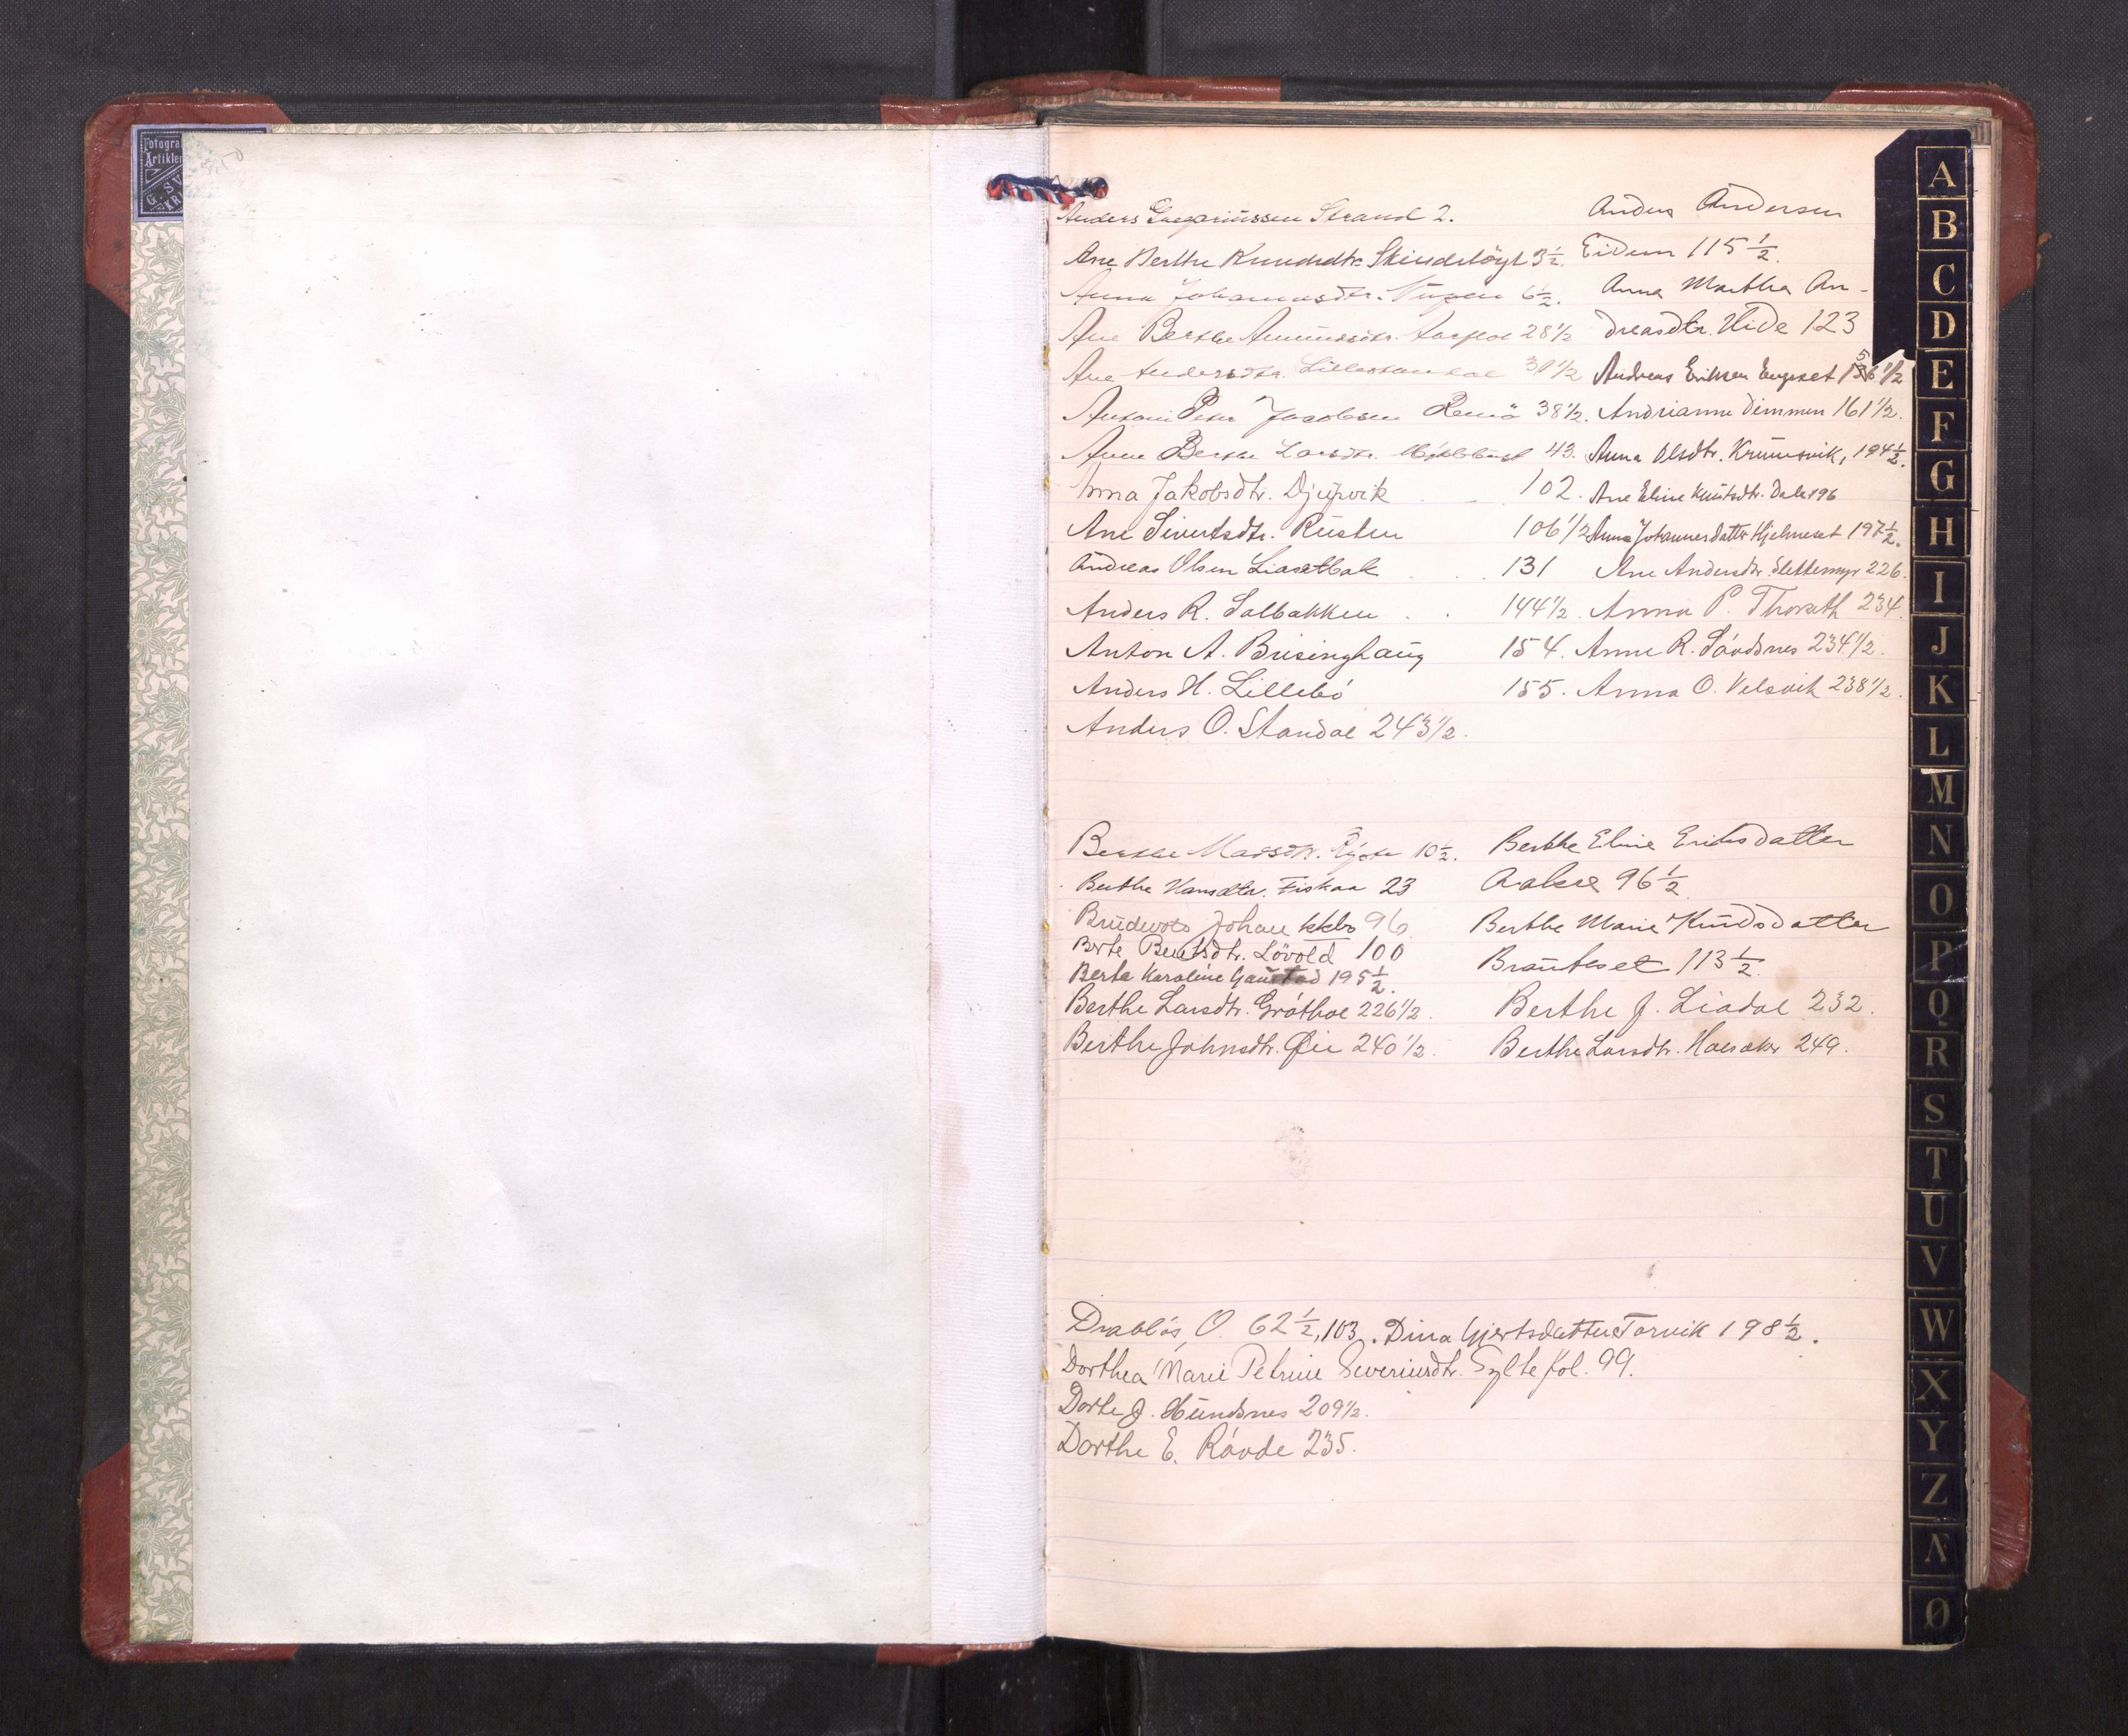 Fotogra
Artikler
G. SV
KRI
Anders Strand 2.
Ane Berthe Knudsdtr. 3½.
Anna Johannesdtr. 6½.
Ane Berthe 28½
Ane Andersdtr. 31½
Peter Jacobsen 38½.
Anne Berthe Larsdtr. 43.
Anna Jakobsdtr. Djupvik 102.
Ane Sivertsdtr. Rusten 106½
Andreas Olsen Liasætbak 131
Anders R. Solbakken 144½.
Anton A. Brisinghaug 154.
Anders H. Lillebö 155.
Anders O. Standal 243½.
Anders Andersen
Eidem 115½.
Anna Martha An-
dreasdtr. Hide 123
Andreas Eriksen Engeset 156½
Andrianne Dimmen 161½.
Anna Olsdtr. Krumsvik, 194½.
Ane Eline Knutsdtr. Dale 196
Anna Johannesdatter Hjelmeset 197½.
Ane Andersdtr. Slettemyr 226.
Anna P. Thorseth 234.
Anne R. Sövdsnes 234½.
Anna O. Velsvik 238½.
Berthe Madsdtr. 10½.
Berthe Hansdtr. Fiskaa 23
Johan 96.
Brte Bentsdtr. Lövold 100
Berta Karoline Gaustad 195½.
Berthe Larsdtr. Gröthol 226½.
Berthe Johnsdtr. Øie 240½.
Berthe Eline Eriksdatter
96½
Berthe Marie Knudsdatter
Brauteset 113½.
Berthe J. Liadal 232.
Berthe Larsdtr. 249.
Drablös, O. 62½, 103. Dina Gjertsdatter Torvik 198½.
Dorthea Marie Petrine Severinsdtr. Sylte fol. 99.
Dorte J. Hundsnes 209½.
Dorthe E. Rövde 235.
A
B
C
D
E
F
G
H
I
J
K
L
M
N
O
P
Q
R
S
T
U
V
W
X
Y
Z
Ø